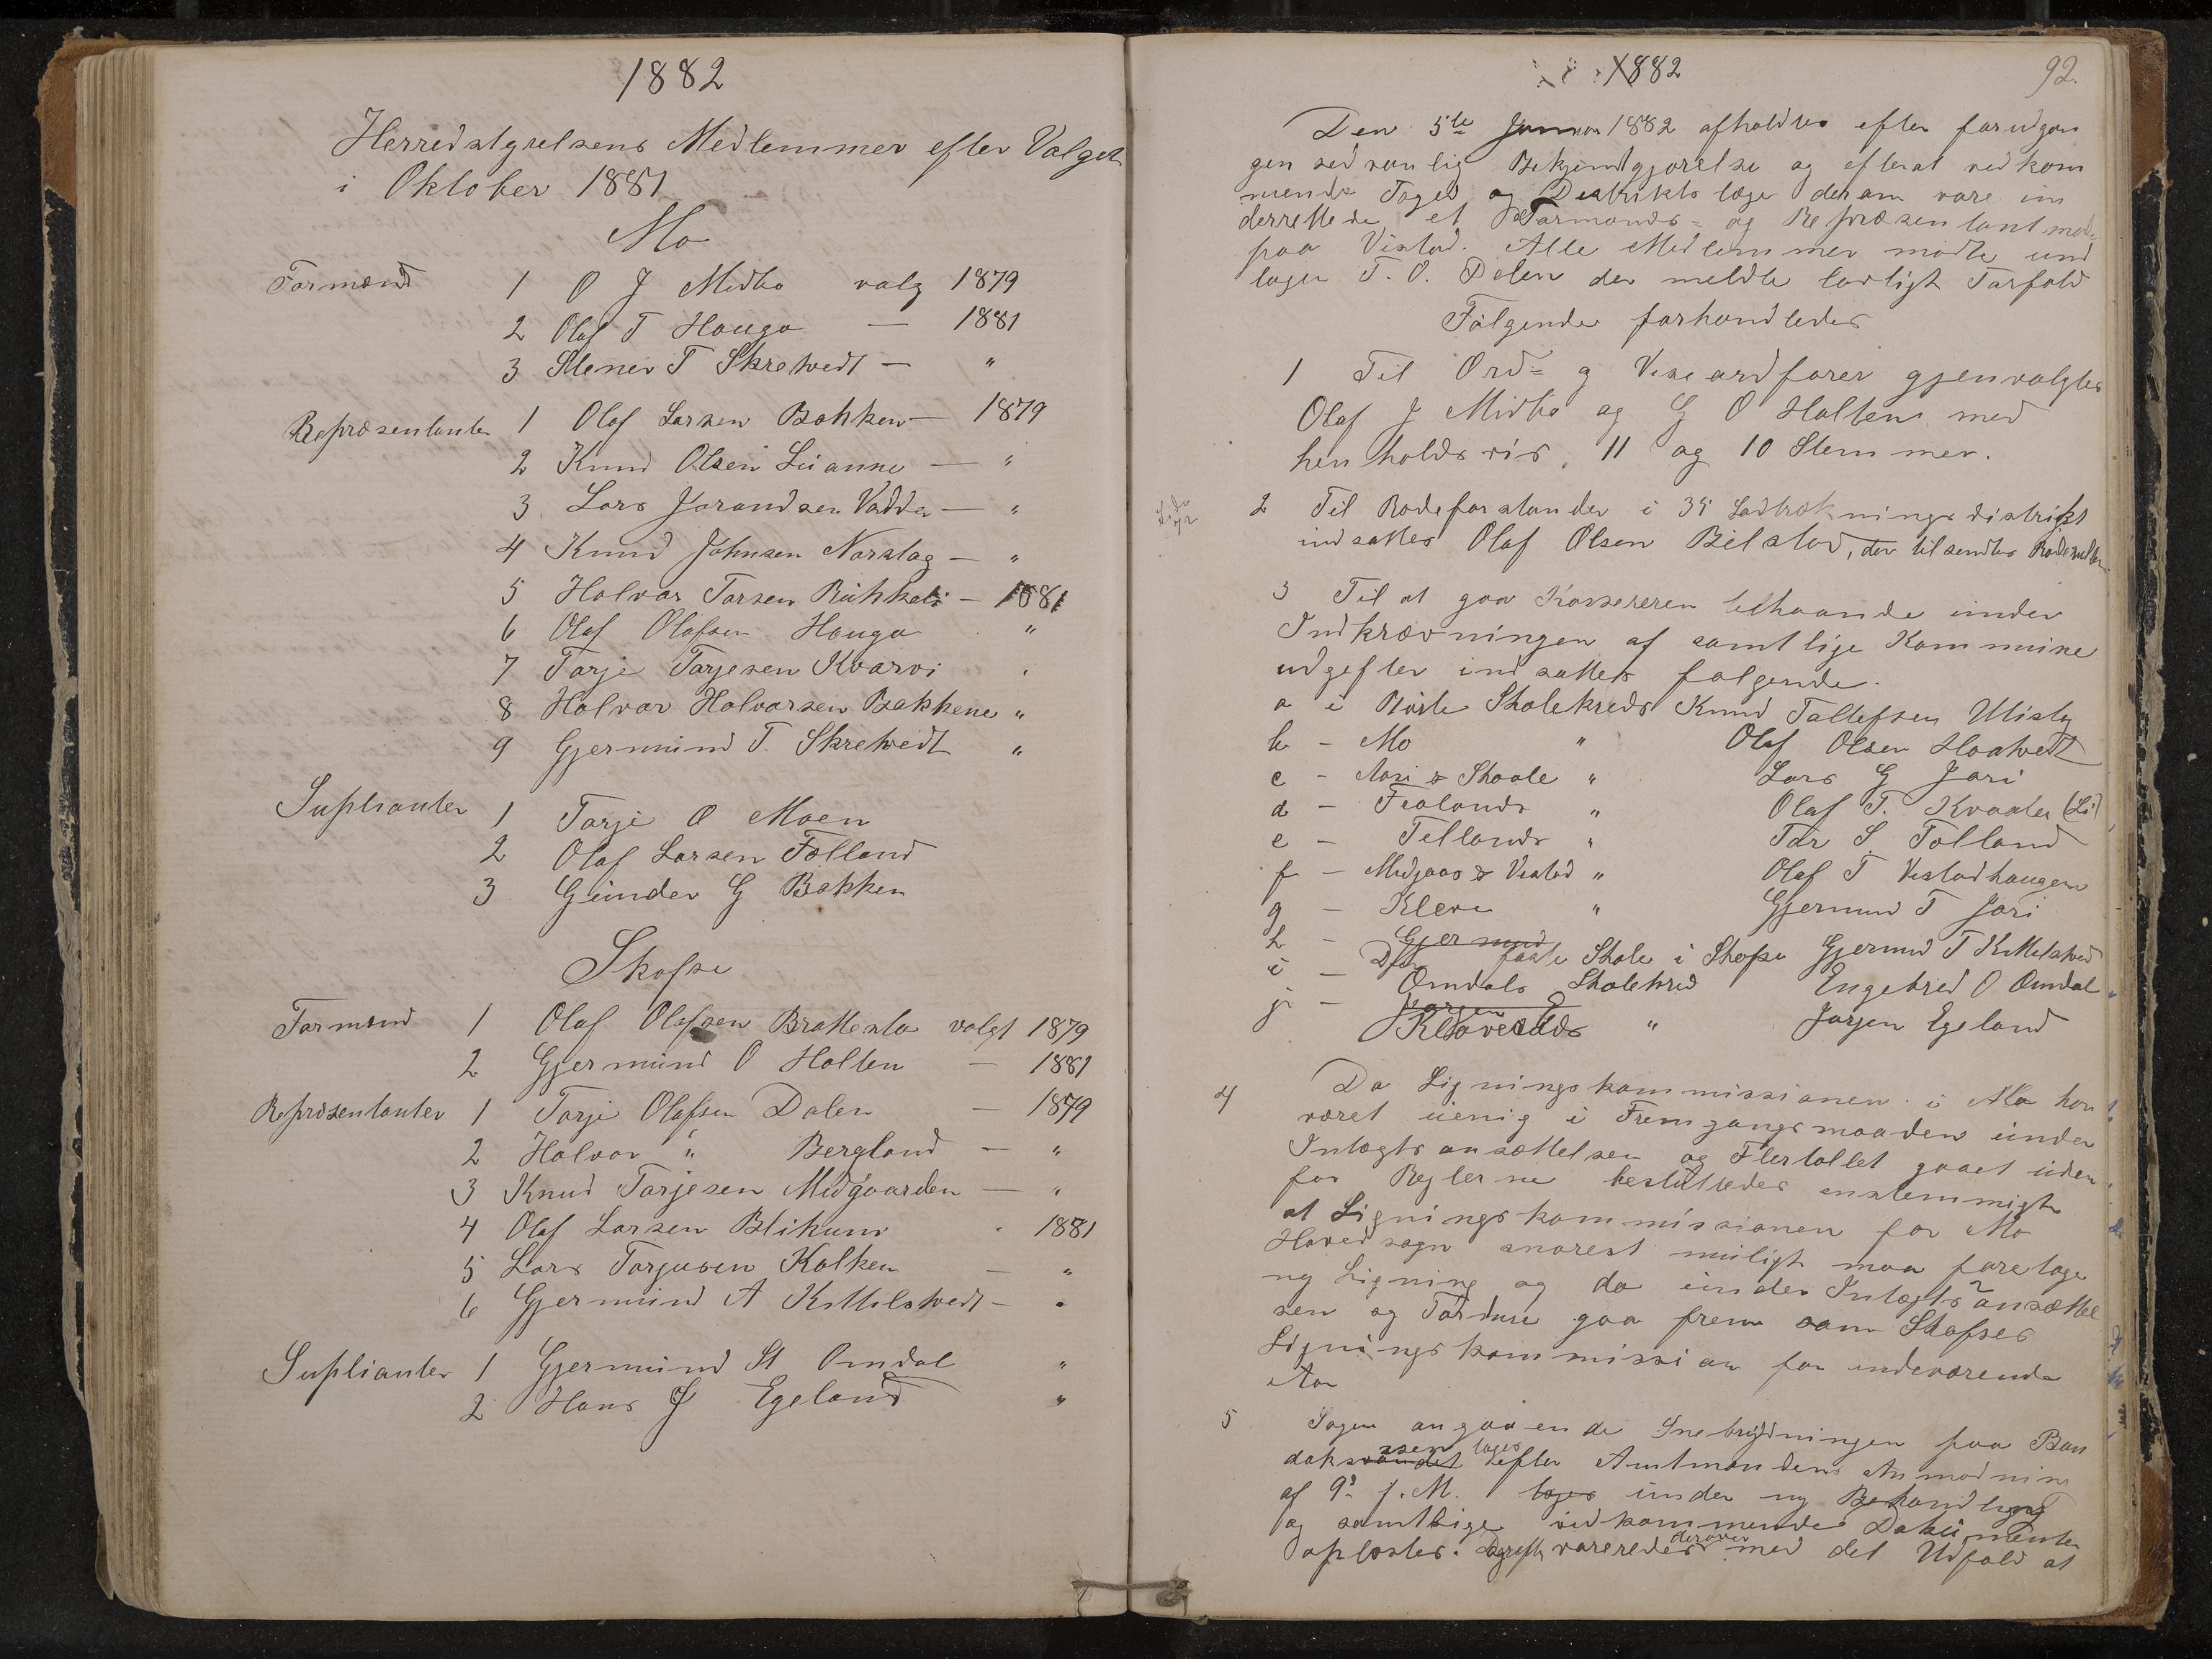 1882
Herredstyrelsens Medlemmer efter Valget
i Oktober 1881
Mo
Formænd 1 O J Midbø valg 1879
2 Olaf T Hauga — 1881
3 Stener T Skretvedt — "
Repræsentanter 1 Olaf Larsen Bakken — 1879
2 Knud Olsen Lianne — "
3 Lars Jorandsen Vadder — "
4 Knud Johnsen Norstog — "
5 Halvor Torsen — 1881
6 Olaf Olafsen Hauga "
7 Tarje Tarjesen Kvarvi "
8 Halvor Halvorsen Bakkene "
9 Gjermund T. Skretvedt "
Suplianter 1 Tarje O Moen
2 Olaf Larsen Følland
3 Gunder G Bakken
Skafse
Formænd 1 Olaf Olafsen Brattestø valgt 1879
2 Gjermund O Holten — 1881
Repræsentanter 1 Tarje Olafsen Dalen — 1879
2 Halvor " Bergland — "
3 Knud Tarjesen Midgaarden — "
4 Olaf Larsen Blikum - 1881
5 Lars Torjusen Kolken — "
6 Gjermund A Kittilstvedt — "
Suplianter 1 Gjermund St Omdal "
2 Hans J Egeland "
1882 92.
Den 5te Januar 1882 afholdtes efter forudgan
gen sedvanlig Bekjendtgjørelse og efterat vedkom
mende Foged og Destriktslæge derom vare un
derrettede et Formands= og Repræsentantmøde
paa Vistad. Alle Medlemmer mødte und
tagen T. O. Dalen der meldte lovligt Forfald
Følgende forhandledes
1 Til Ord= og Viseordfører gjenvalgtes
Olaf J Midbø og G O Holten med
henholdsvis 11 og 10 Stemmer.
2 Til Rodeforstander i 35 distrikt
indsattes Olaf Olsen Bilstad, der tilsendtes
3 Til at gaa Kassereren tilhaande under
Indkrævningen af samtlige Kommune
udgifter indsattes følgende.
a i Børte Skolekreds Knud Tallefsen Utistog
b - Mo " Olaf Olsen Haatvedt
c - & Skaale " Lars G Jori
d - " Olaf T. Kvaale (Li)
e - " Tor S. Folland
f - Midgaar & Vistad " Olaf T Vistadhaugen
g - Kleve " Gjermund T Jori
h - Gjermund faste Skole i Skafse Gjermund T Kittilstvedt
i - Omdals Skolekred Engebred O Omdal
j - Jørgen E Kleivelids " Jørgen Egeland
4 Da Ligningskommissionen i Mo har
været uenig i Fremgangsmaaden under
Intægtsansættelsen og Flertallet gaaet uden
for Reglerne besluttedes enstemmigt
at Ligningskommissionen for Mo
Hovedsogn snarest muligt maa foretage
ny Ligning og da under Intægtsansættel
sen og Formue gaa frem som Skafses
Ligningskommission for indeværende
Aar
5 Sagen angaaende Snebrydningen paa Ban
daksvandet sen toges efter Amtmandens Anmodning
af 9' f. M. toges under ny Behandling
og samtlige vedkommende Dokumenter
oplæstes. voreredes derover med det Udfald at